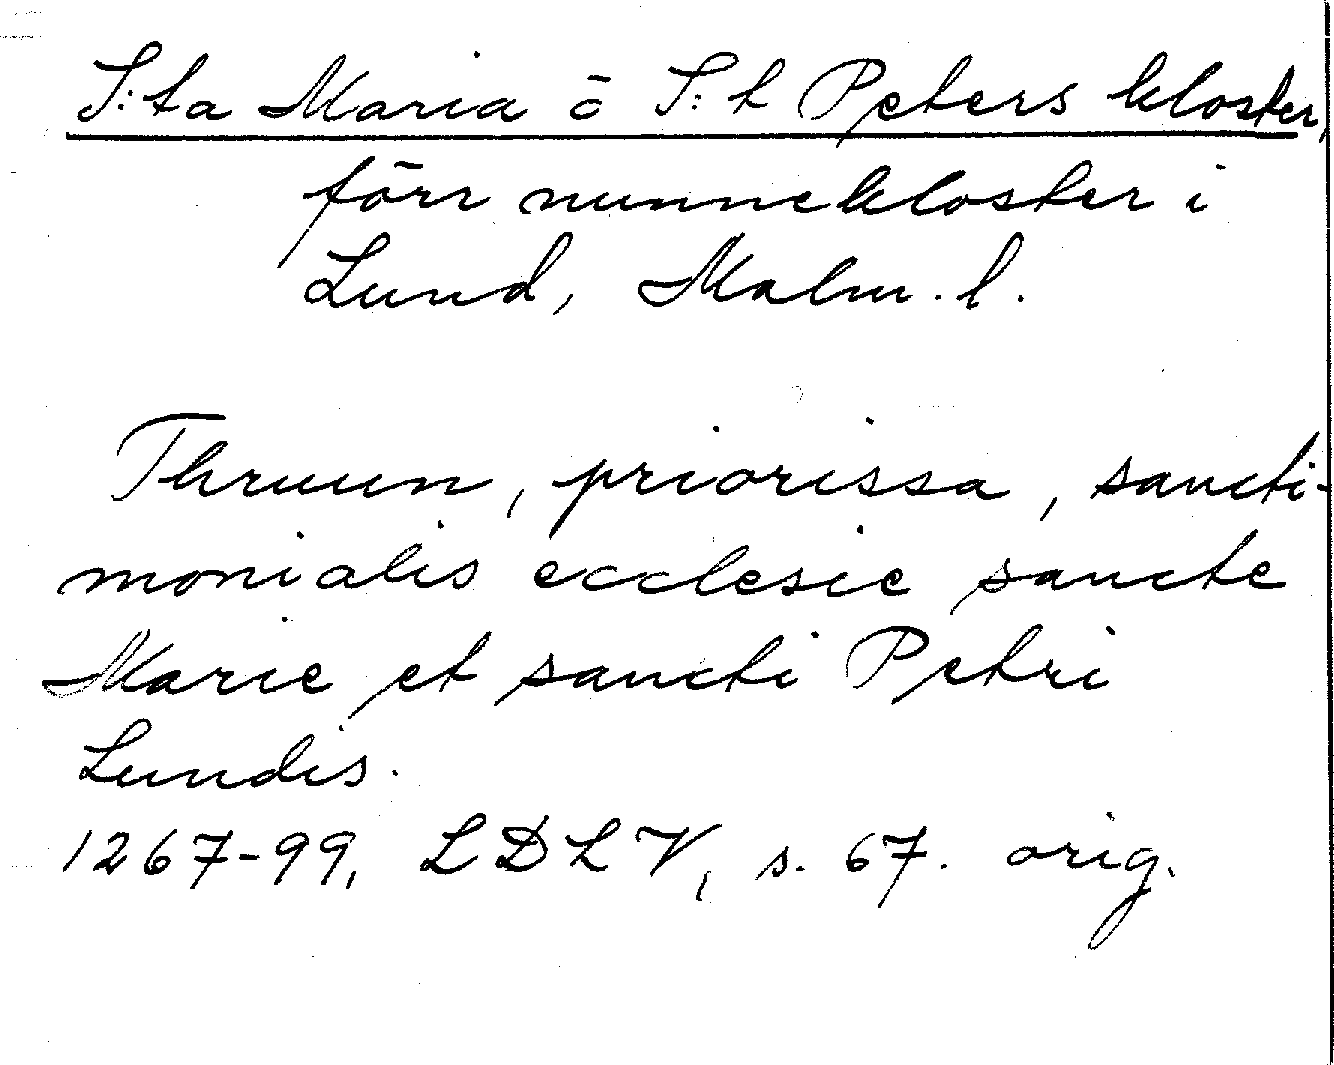 S:ta Maria o S:t Peters kloster,
förr nunnekloster i
Lund, Malm. l.
Thruun, priorissa, sancti-
monialis ecclesie sancte
Marie et sancti Petri
Lundis.
1267-99, LDLV, s. 67. orig.